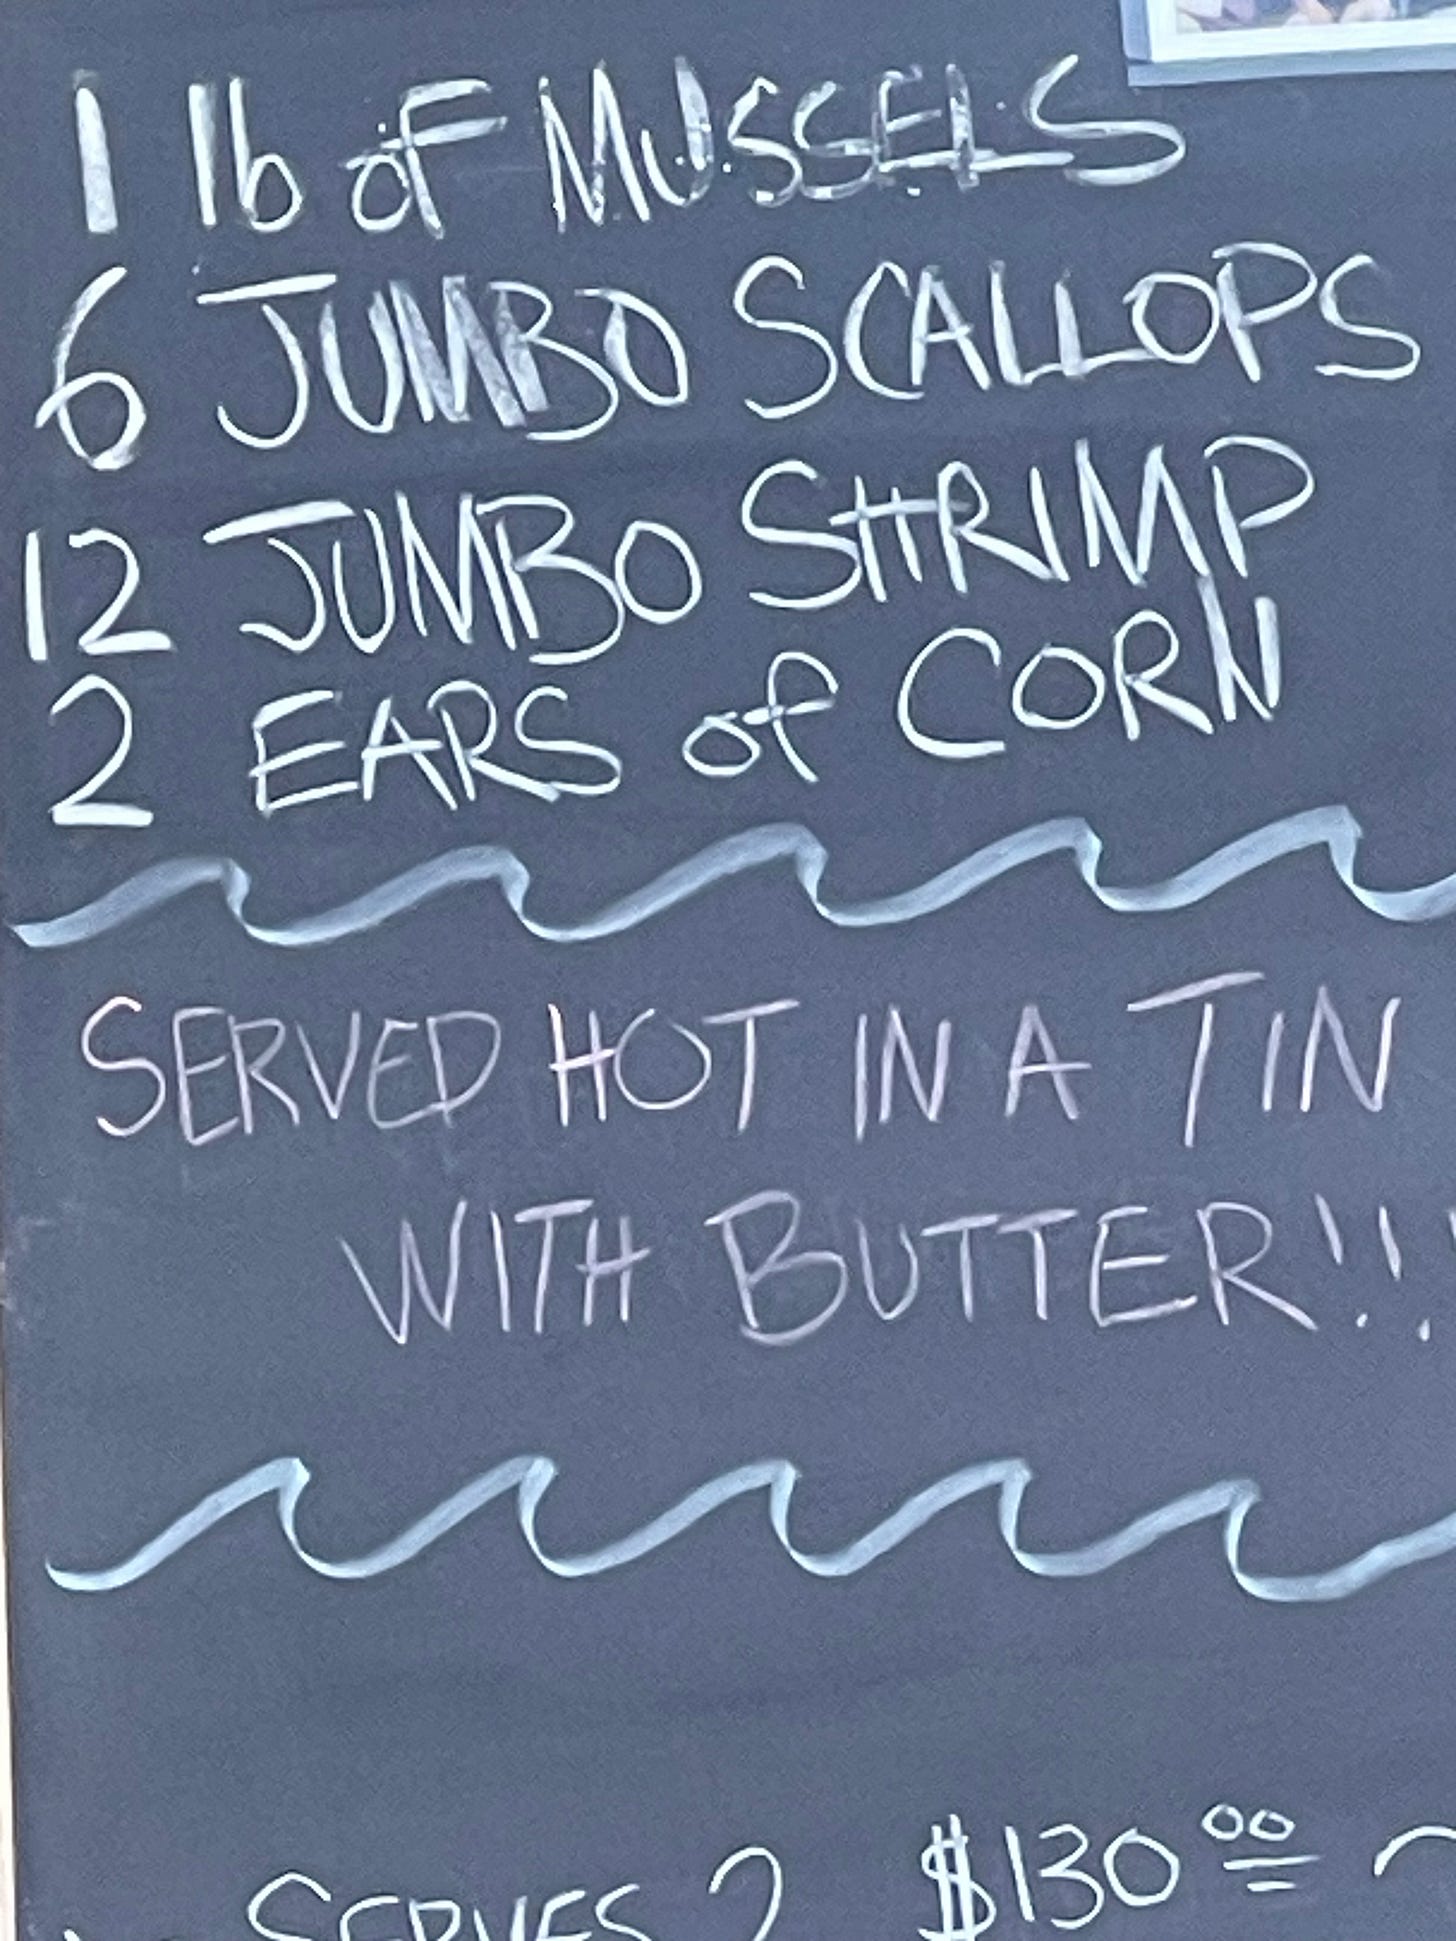 1 lb of MUSSELS
6 JUMBO SCALLOPS
12 JUMBO SHRIMP
2 EARS of CORN
SERVED HOT IN A TIN
WITH BUTTER!!!
SERVES 2 $130.00